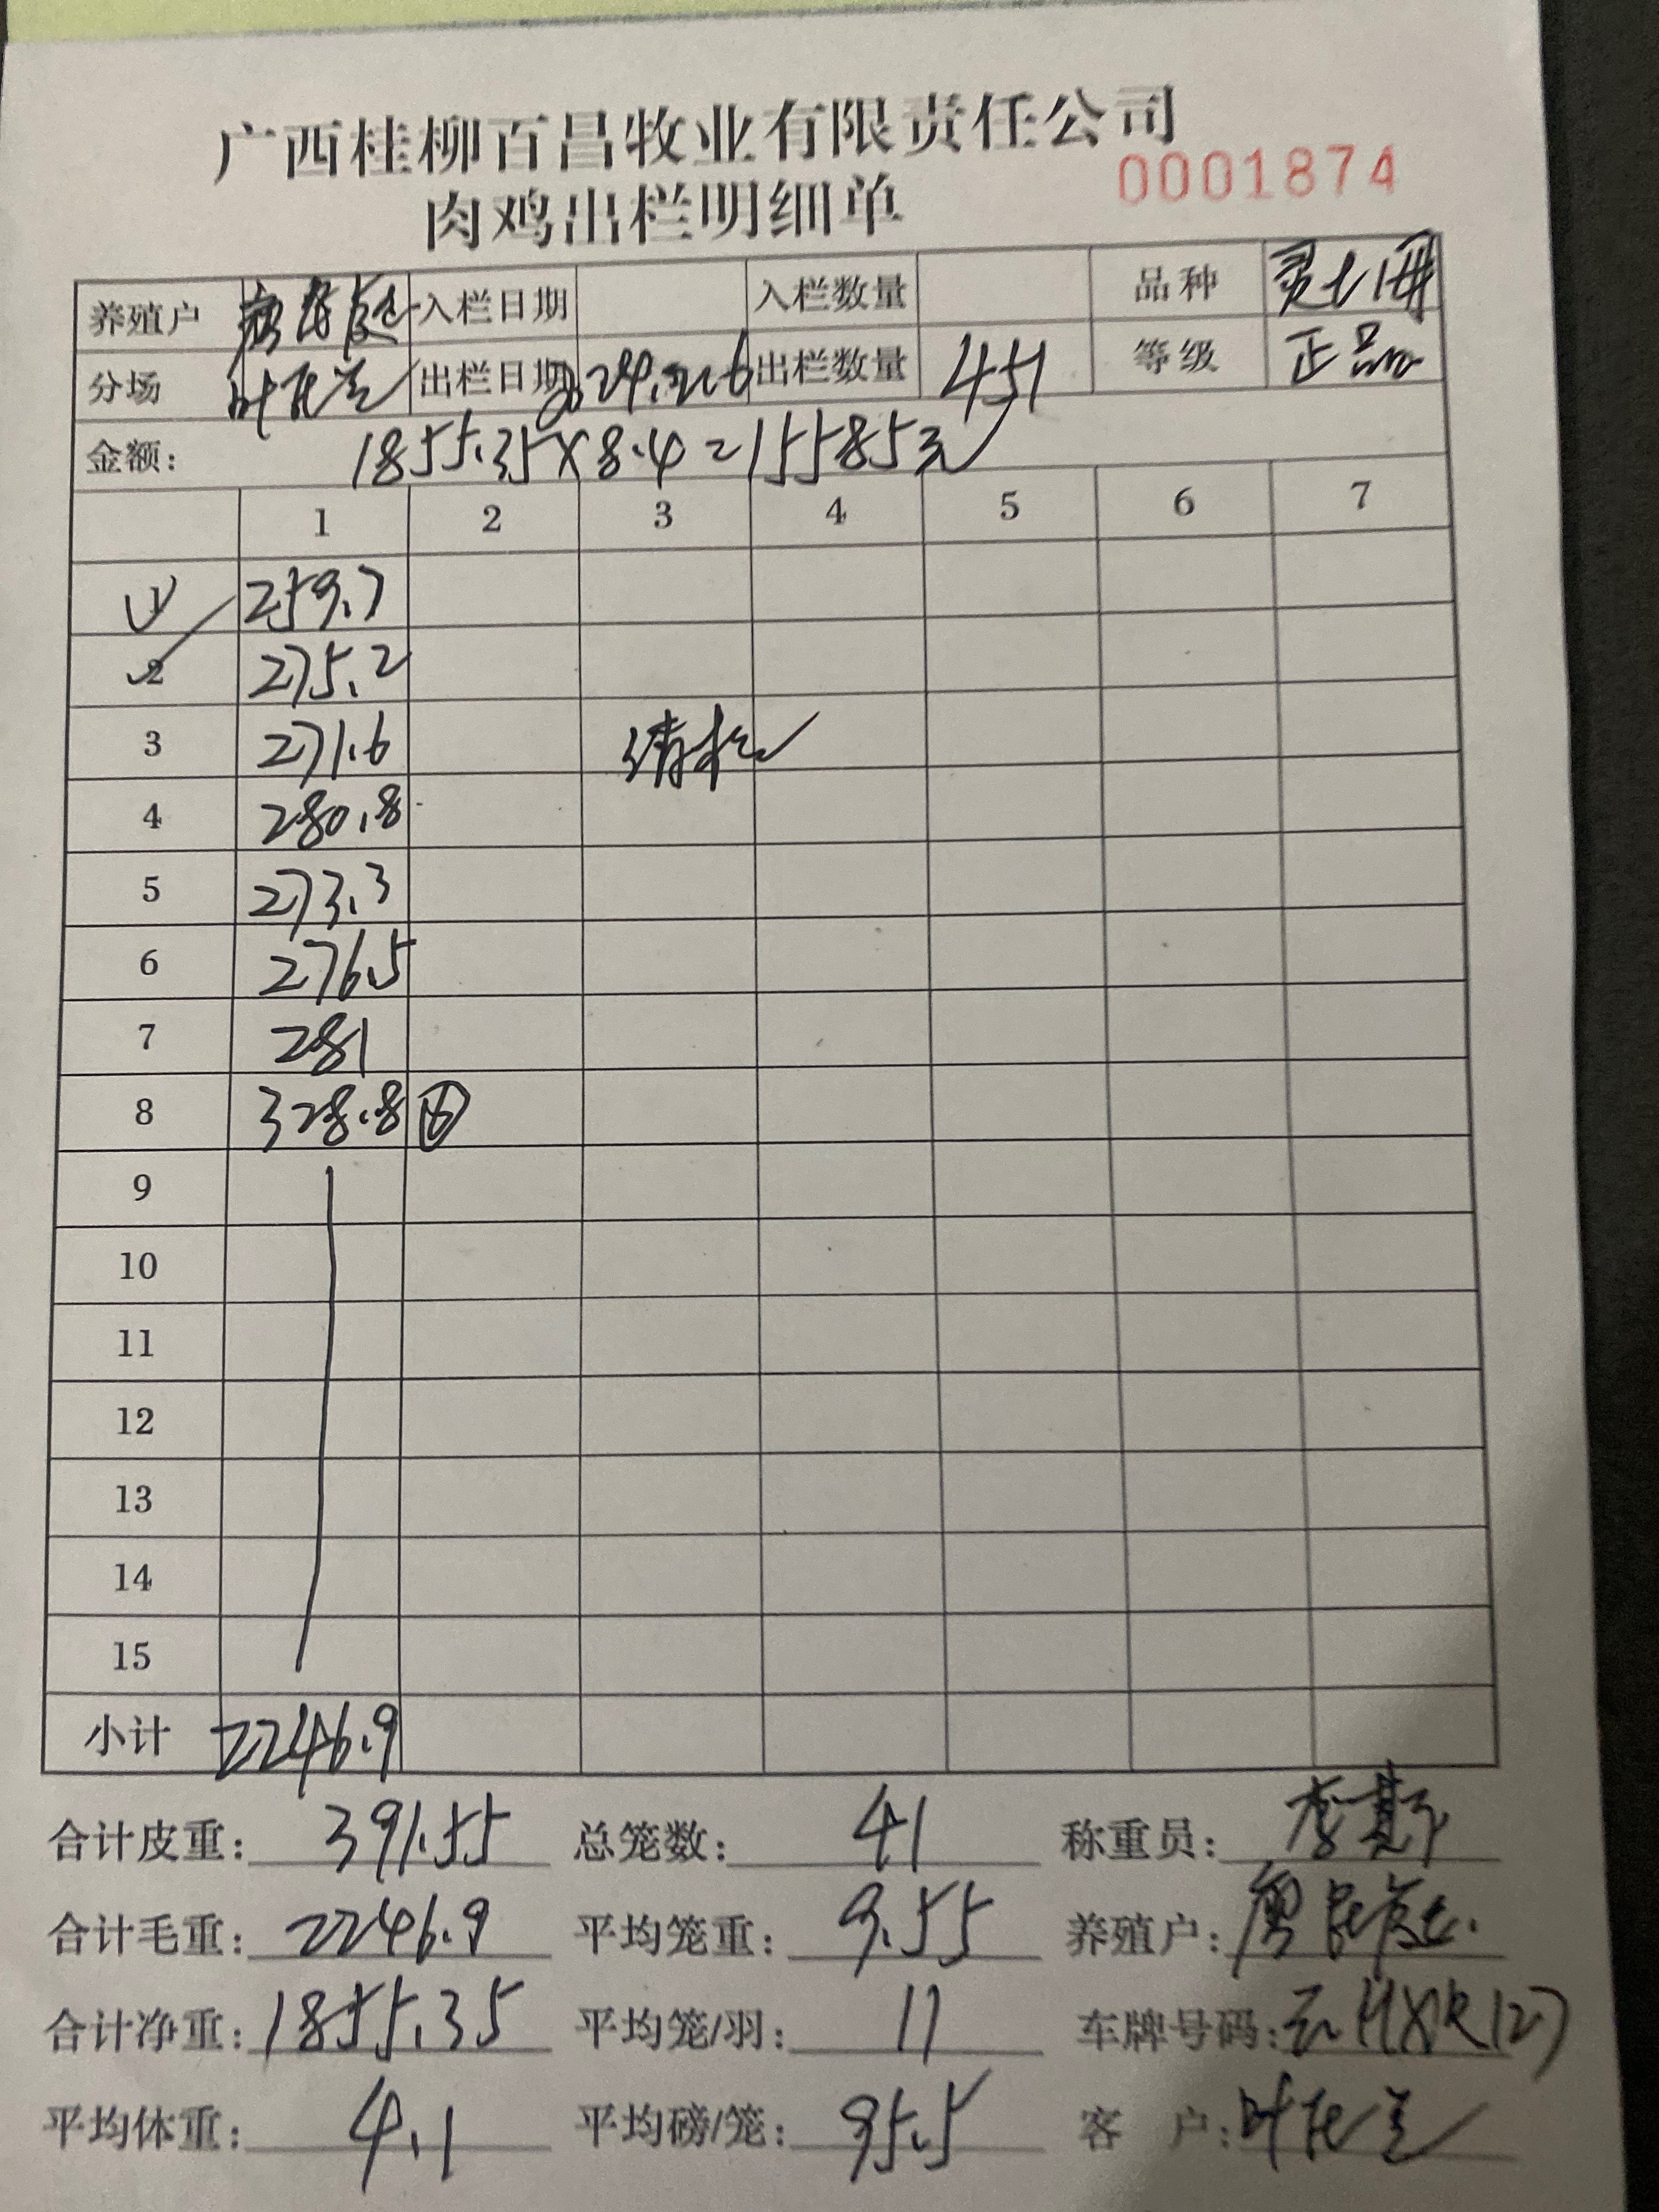 广西桂柳百昌牧业有限责任公司
肉鸡出栏明细单 0001874
养殖户 入栏日期 入栏数量 品种
分场 叶在兰 出栏日期 出栏数量 451 等级 正品
金额: 1855.35×8.4=15585元
1 2 3 4 5 6 7
1 259.7
2 275.2
3 271.6 清栏
4 280.8
5 273.3
6 276.5
7 281
8 328.8 ⑥
9
10
11
12
13
14
15
小计 2246.9
合计皮重: 391.55 总笼数: 41 称重员: 李
合计毛重: 2246.9 平均笼重: 9.55 养殖户: 廖
合计净重: 1855.35 平均笼/羽: 11 车牌号码:
平均体重: 4.1 平均磅/笼: 95.5 客 户: 叶在兰